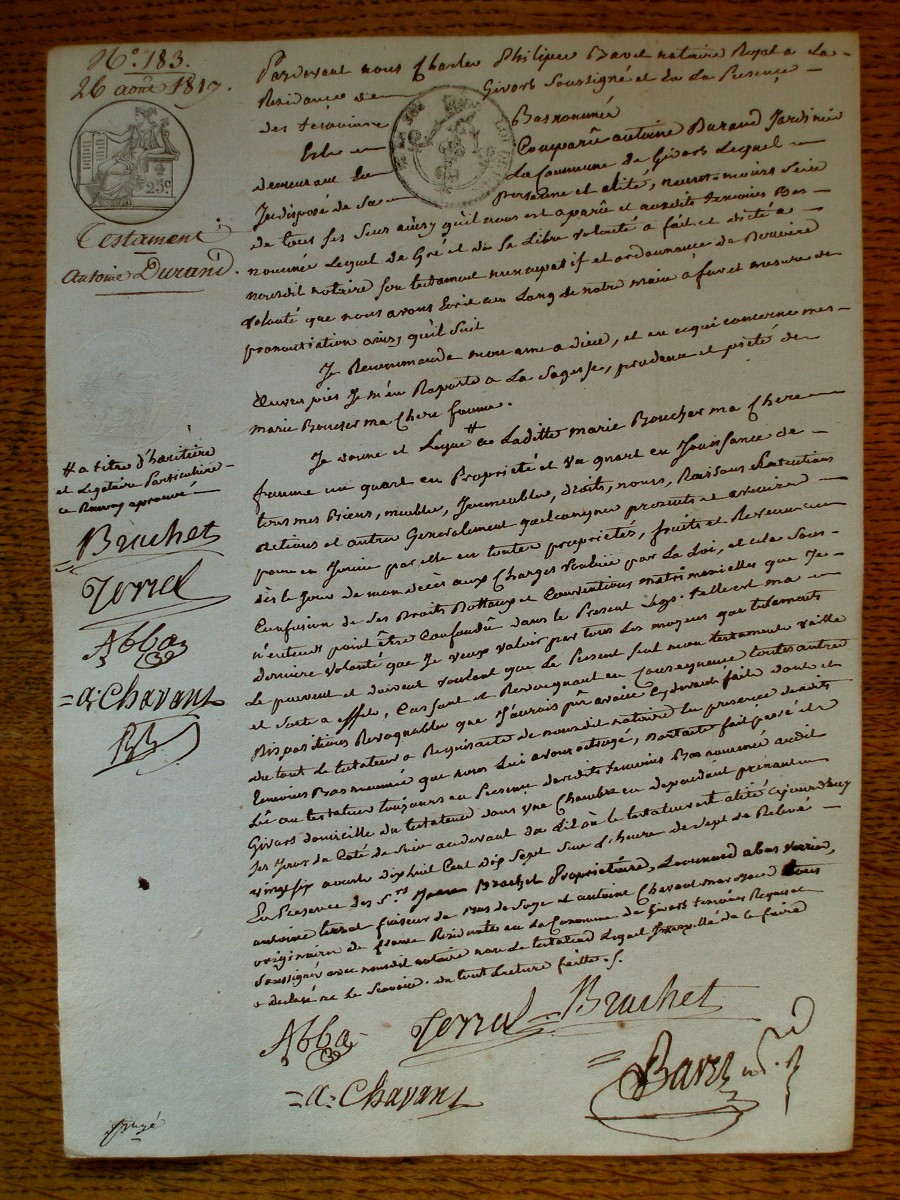 N.º 183.
26 août 1817.
25.c
Testament
Antoine Durand.
Pardevant nous Charles Philippe Bavet notaire Royal a La
Residance de Givors Soussigné et En La Presence
des temoins Basnommés
Est Comparû antoine Durand Jardinier
demeurant En La Commune de Givors Lequel
Indisposé de Sa personne et alité, neant-moins Sein
de tous ses Sens ainsy qu'il nous est aparû et auxdits temoins Bas
nommés Lequel de Gré et de Sa Libre volonté a fait et dicté a
nousdit notaire Son testament nuncupatif et ordonnance de Derniere
volonté que nous avons Ecrit au Long de notre main a fur et mesure de
prononciation ainsy qu'il Suit
Je Recommande mon ame a dieu, et en ce qui concerne mes
Œuvres pies Je m'en Raporte a La Sagesse, prudence et piété de
marie Boucher ma Chere femme.
Je donne et Legue # a Laditte marie Boucher ma Chere
femme un quart en Propriété et Un quart en Jouissance de
tous mes Biens, meubles, Immeubles, droits, noms, Raisons Rescutions
actions et autres Generalement quelconques presents et avenirs
pour en Jouir par elle en toutes propriétés, fruits et Revenus
dès le Jour de mon decès aux Charges Voulues par La Loi, et cela Sans
Confusion de Ses Droits Dottaux et Conventions matrimonielles que Je
n'entends point être Confondû dans le Present Legs. telle est ma
derniere Volonté que Je veux valoir par tous Les moyens que testaments
Le peuvent et doivent voulant que Le Present Soit mon testament vaille
et Sorte a effet, Cassant et Revoquant en Consequence toutes autres
Dispositions Revoquables que J'aurais pû avoir Cy devant faite dont et
du tout Le testateur a Requis acte de nousdit notaire En presence desdits
temoins Basnommés que nous Lui avons octroyé, nantaste fait passé et
Lû au testateur toujours en Presence desdits temoins Basnommés audit
Givors domicille du testateur dans une Chambre en dependant prenant
Ses Jours du Coté de Soir audevant du Lit où Le testateur est alité cejourd'huy
vingt Six aoust dixhuit Cent dix Sept Sur L'heure de Sept de Relevé
En Presence des S.rs Brachet Propriétaire, Leonnard abas Verrier,
antoine terrat faiseur de Bas de Soye et antoine Chavant marchand tous
originaires de france Residants en La Commune de Givors temoins Requis et
Soussignés avec nousdit notaire non Le testateur Lequel Interpellé de ce faire
a declaré ne Le Scavoir. du tout Lecture faitte./.
# a titre d'héritière
et Legataire Particuliere
ce Renvoy aprouvé
Brachet
Terrat
Abbas
= a: Chavant
Abbas
Terrat = Brachet
= a: Chavant
= Bavet